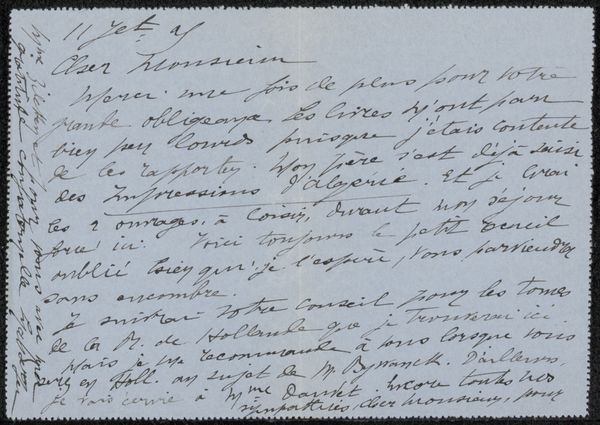 11 Jet
Cher Monsieur
Merci une fois de plus pour votre
grande obligeance. Les livres m'ont paru
bien peu lourds puisque j'étais contente
de les rapporter. Mon père s'est déjà saisi
des Impressions d'Algérie. Et je lirai
les 2 ouvrages, à loisir, durant mon séjour
ici. Voici toujours le petit
oublié hier qui, je l'espère, vous parviendra
sans encombre.
Je suivrai votre conseil pour les tomes
de la R. de Hollande que je trouverai ici
Mais je me recommande à vous lorsque vous
serez en Holl. au sujet de M. Byvanck. D'ailleurs,
je vais écrire à Mme Encore toutes nos
sympathies, cher Monsieur, pour
Mme et pour vous avec mon